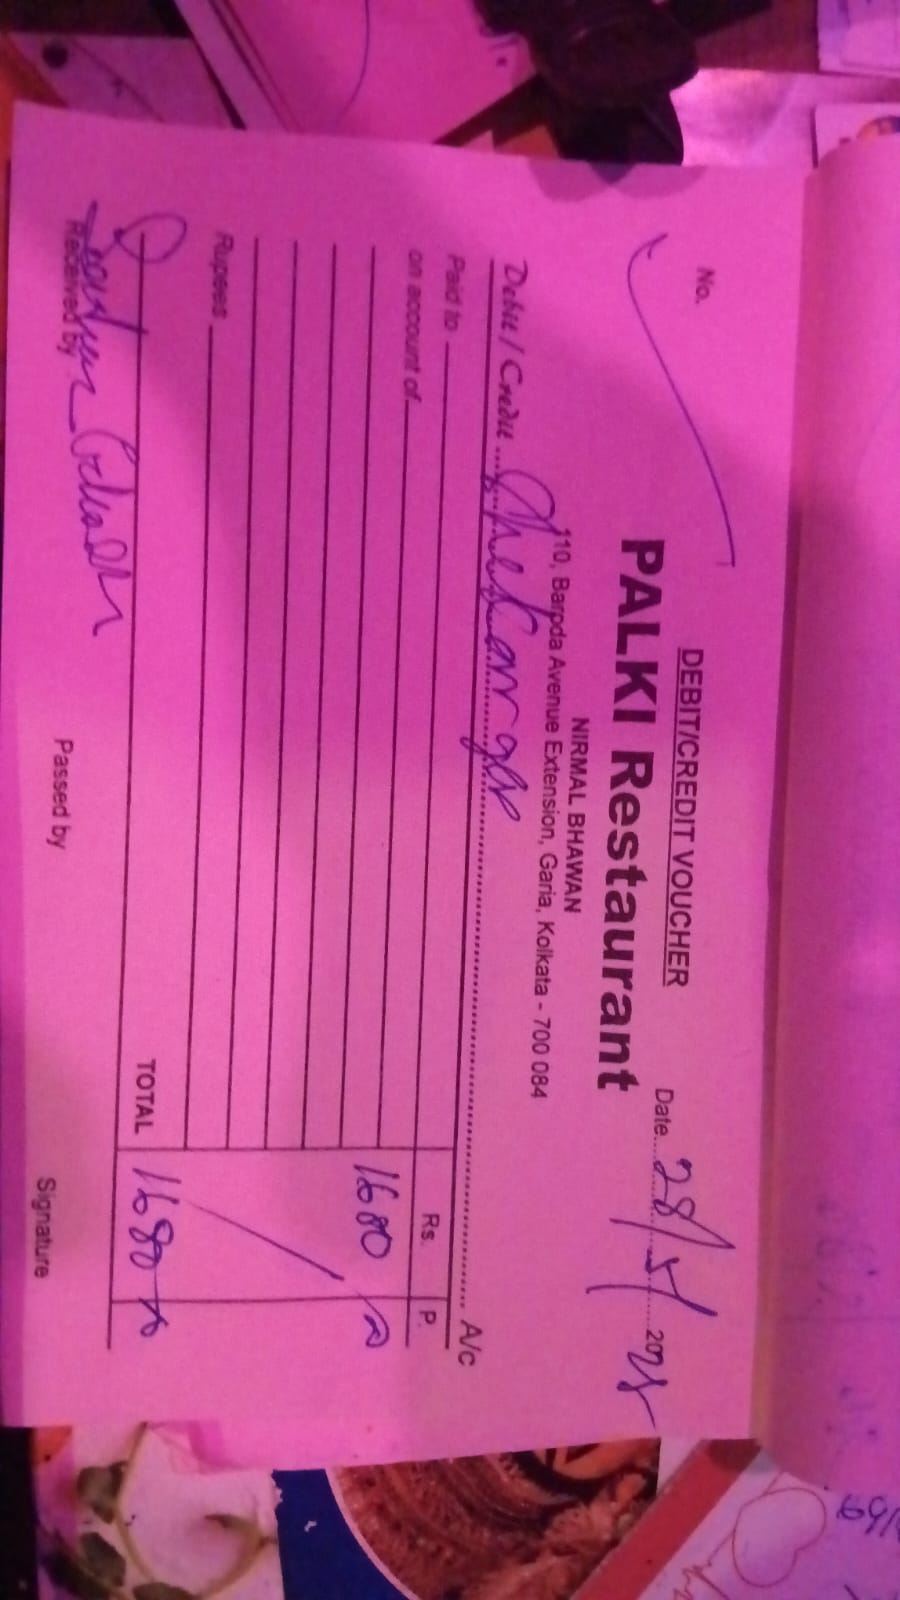 No.
DEBIT/CREDIT VOUCHER
Date 28/5/2025
PALKI Restaurant
NIRMAL BHAWAN
110, Baroda Avenue Extension, Garia, Kolkata - 700 084
Debit / Credit A/c
Paid to
on account of
Rs. P.
1680
Rupees
TOTAL 1680
Received by
Passed by
Signature